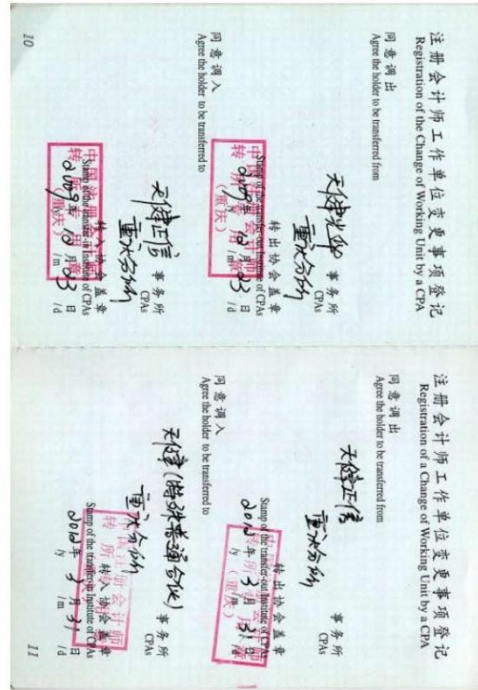 注册会计师工作单位变更事项登记
Registration of the Change of Working Unit by a CPA
同意调出
Agree the holder to be transferred from
天健光华
重庆分所
事务所
CPAs
转出协会盖章
Stamp of the transfer-out Institute of CPAs
2009年12月23日
/m /d
同意调入
Agree the holder to be transferred to
天健正信
重庆分所
事务所
CPAs
转入协会盖章
Stamp of the transfer-in Institute of CPAs
2009年12月23日
/m /d
10
注册会计师工作单位变更事项登记
Registration of a Change of Working Unit by a CPA
同意调出
Agree the holder to be transferred from
天健正信
重庆分所
事务所
CPAs
转出协会盖章
Stamp of the transfer-out Institute of CPAs
2012年3月31日
/y /m /d
同意调入
Agree the holder to be transferred to
天健(特殊普通合伙)
重庆分所
事务所
CPAs
转入协会盖章
Stamp of the transfer-in Institute of CPAs
2012年3月31日
/y /m /d
11